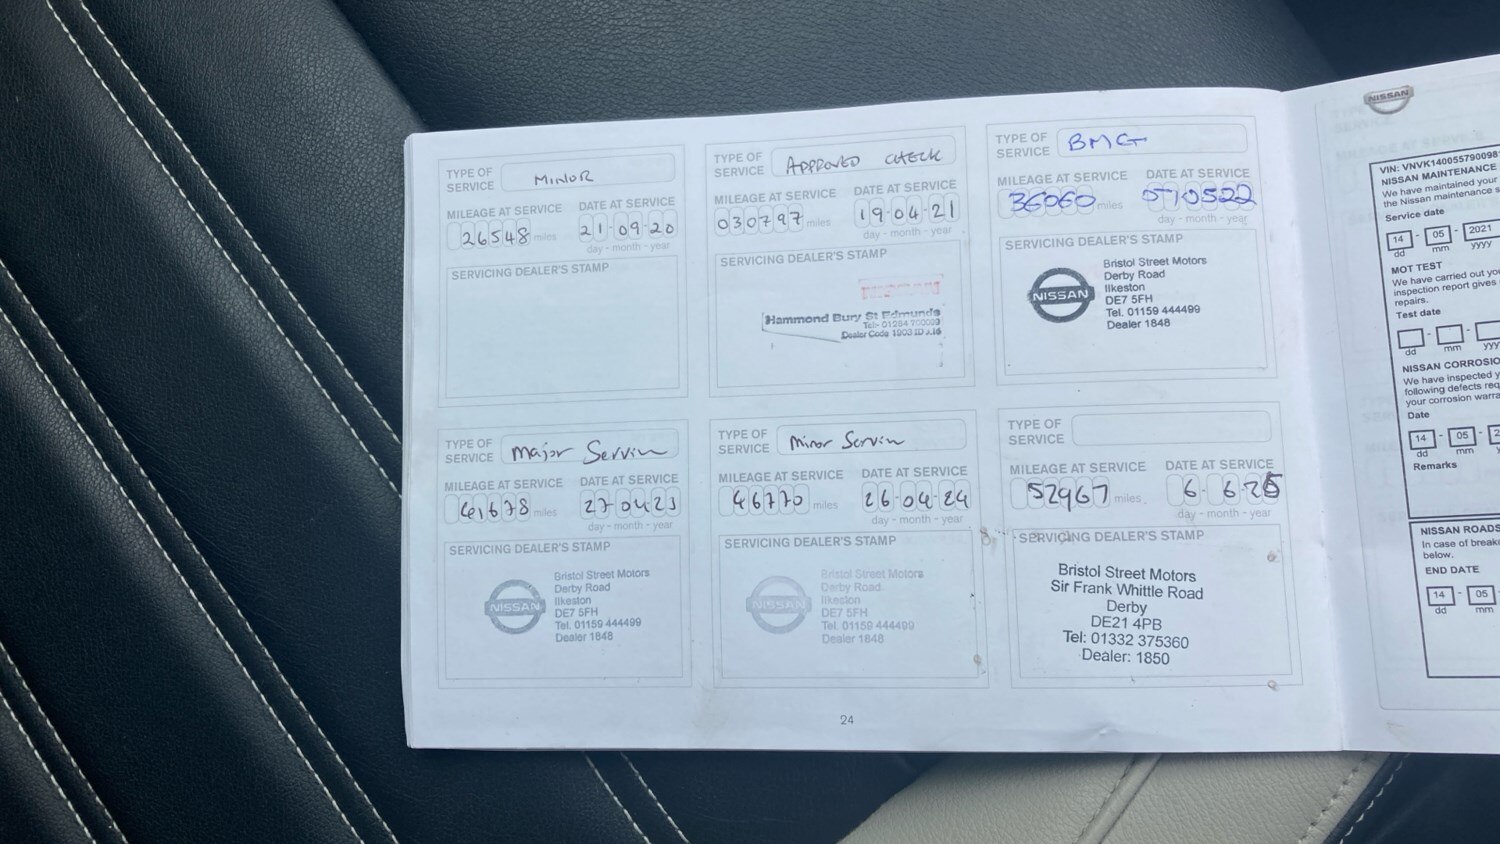 TYPE OF SERVICE MINOR
MILEAGE AT SERVICE DATE AT SERVICE
26548 miles 21-09-20
day - month - year
SERVICING DEALER'S STAMP
TYPE OF SERVICE APPROVED CHECK
MILEAGE AT SERVICE DATE AT SERVICE
030797 miles 19-04-21
day - month - year
SERVICING DEALER'S STAMP
NISSAN
Hammond Bury St Edmunds
Tel:- 01284 700009
Dealer Code 1903
TYPE OF SERVICE BMG
MILEAGE AT SERVICE DATE AT SERVICE
36060 miles
day - month - year
SERVICING DEALER'S STAMP
NISSAN
Bristol Street Motors
Derby Road
Ilkeston
DE7 5FH
Tel. 01159 444499
Dealer 1848
TYPE OF SERVICE Major Service
MILEAGE AT SERVICE DATE AT SERVICE
41678 miles 27-04-23
day - month - year
SERVICING DEALER'S STAMP
NISSAN
Bristol Street Motors
Derby Road
Ilkeston
DE7 5FH
Tel. 01159 444499
Dealer 1848
TYPE OF SERVICE Minor Service
MILEAGE AT SERVICE DATE AT SERVICE
46770 miles 26-04-24
day - month - year
SERVICING DEALER'S STAMP
NISSAN
Bristol Street Motors
Derby Road
Ilkeston
DE7 5FH
Tel. 01159 444499
Dealer 1848
TYPE OF SERVICE
MILEAGE AT SERVICE DATE AT SERVICE
52967 miles 6-6-25
day - month - year
SERVICING DEALER'S STAMP
Bristol Street Motors
Sir Frank Whittle Road
Derby
DE21 4PB
Tel: 01332 375360
Dealer: 1850
24
NISSAN
VIN: VNVK140055790098
NISSAN MAINTENANCE
We have maintained your
the Nissan maintenance s
Service date
14 - 05 - 2021
dd mm yyyy
MOT TEST
We have carried out you
inspection report gives
repairs.
Test date
dd mm yyyy
NISSAN CORROSIO
We have inspected y
following defects req
your corrosion warra
Date
14 - 05 - 2
dd mm
Remarks
NISSAN ROADS
In case of break
below.
END DATE
14 - 05 -
dd mm